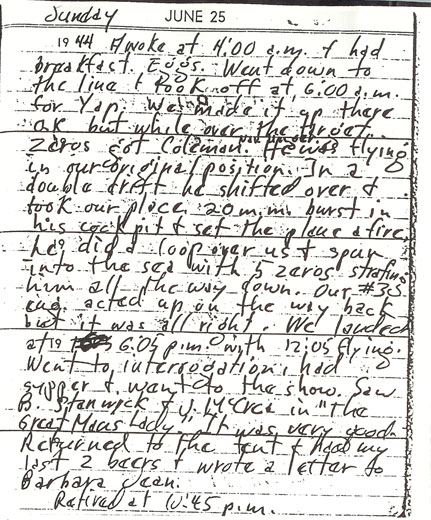 Sunday JUNE 25
1944 Awoke at 4:00 a.m. & had
breakfast. Eggs. Went down to
the line & took off at 6:00 a.m.
for Yap. We made it up there
ok but while over the target
Zeros got Coleman. He was flying
in our original position. In a
double drift he shifted over &
took our place. 20 m.m. burst in
his cockpit & set the plane afire,
he did a loop over us & spun
into the sea with 5 zeros strafing
him all the way down. Our #3
eng. acted up on the way back
but it was all right. We landed
at 19 6:05 p.m. with 12:05 flying.
Went to interrogation, had
supper & went to the show. Saw
B. Stanwick & J. McCrea in "the
Great Mans Lady". It was very good.
Returned to the tent & had my
last 2 beers & wrote a letter to
Barbara Jean.
Retired at 10:45 p.m.